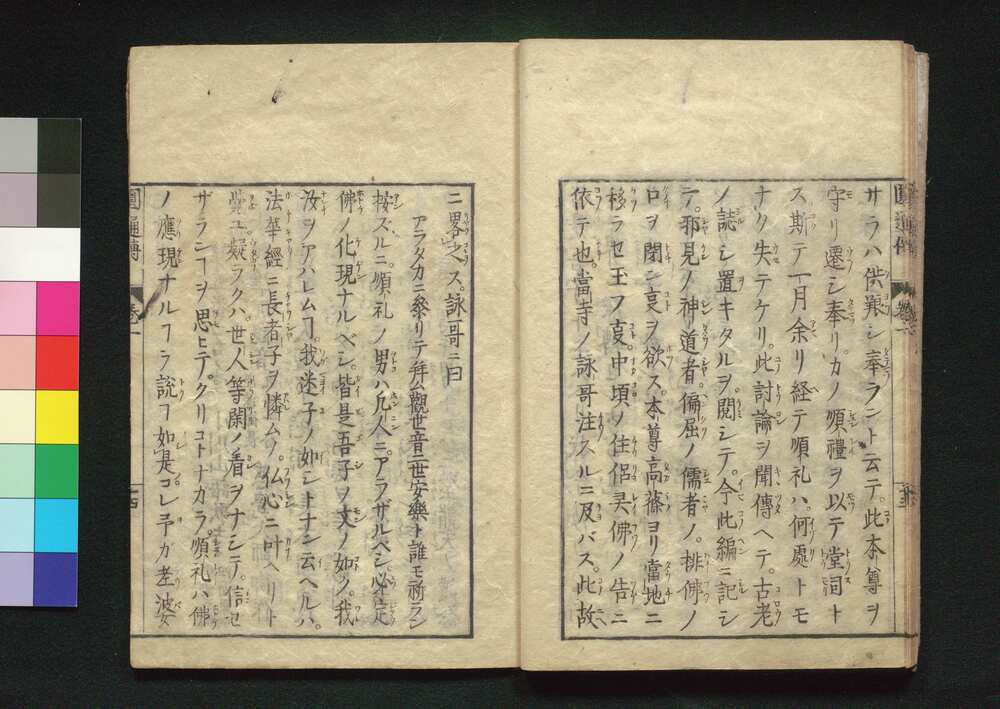 サラハ供羪シ奉ラントテ云テ此本尊ヲ
守リ還シ奉リカノ順禮ヲ以テ堂洞ト
ス斯テ一月余リ経テ順礼ハ何處トモ
ナク失テケリ此討論ヲ聞傳ヘテ古老
ノ誌シ置キタルヲ閲シテ今此編ニ記シ
テ邪見ノ神道者偏屈ノ儒者ノ排佛ノ
口ヲ閉ン㕝ヲ欲ス本尊高藤ヨリ當地ニ
移ラセ玉フ㕝中頃ノ住侶灵佛ノ告ニ
依テ也當寺ノ詠哥注スルニ及バス此故
ニ畧之ス詠哥ニ曰
アラタカニ参リテ拜ム觀世音二世安樂ト誰モ祈ラン
按ズルニ順礼ノ男ハ凡人ニアラザルベシ必定
佛ノ化現ナルベシ皆是吾子ヲ父ノ如ク我
汝ヲアハレムヿ我迷子ノ如シトナン云ヘルハ
法華經ニ長者子ヲ憐ムノ仏心ニ叶ヘリト
覺ユ疑ラクハ世人等閑ノ看ヲナシテ信セ
ザランヿヲ思ヒテクリコトナカラ順礼ハ佛
ノ應現ナルヿヲ説ヿ如是コレ予カ老波
圓通傳 卷一
圓通傳 卷一 十四